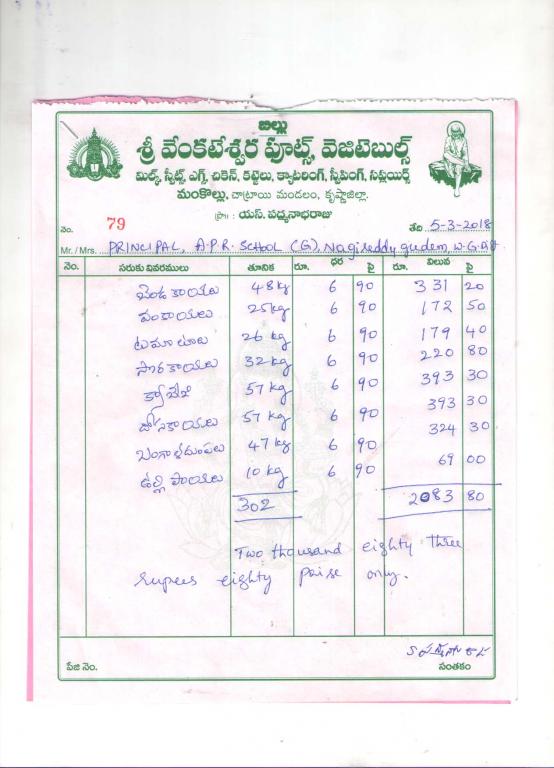 బిల్లు
శ్రీ వేంకటేశ్వర ఫ్రూట్స్, వెజిటెబుల్స్
మిల్క్, స్వీట్స్, ఎగ్స్, చికెన్, కట్టెలు, క్యాటరింగ్, స్వీపింగ్, సప్లయర్స్
మంకొల్లు, చాట్రాయి మండలం, కృష్ణాజిల్లా.
ప్రొ॥ : యస్. పద్మనాభరాజు
నెం. 79 తేది 5-3-2018
Mr. / Mrs. PRINCIPAL, A.P.R. SCHOOL (G), Nagireddy gudem, W.G.Dt
నెం. సరుకు వివరములు తూనిక రూ. ధర పై రూ. విలువ పై
బెండకాయలు 48 kg 6 90 331 20
వంకాయలు 25 kg 6 90 172 50
టమాటాలు 26 kg 6 90 179 40
సొరకాయలు 32 kg 6 90 220 80
క్యాబేజి 57 kg 6 90 393 30
దోసకాయలు 57 kg 6 90 393 30
బంగాళదుంపలు 47 kg 6 90 324 30
ఉల్లిపాయలు 10 kg 6 90 69 00
302 2083 80
Two thousand eighty three
rupees eighty paise only.
పేజి నెం. సంతకం